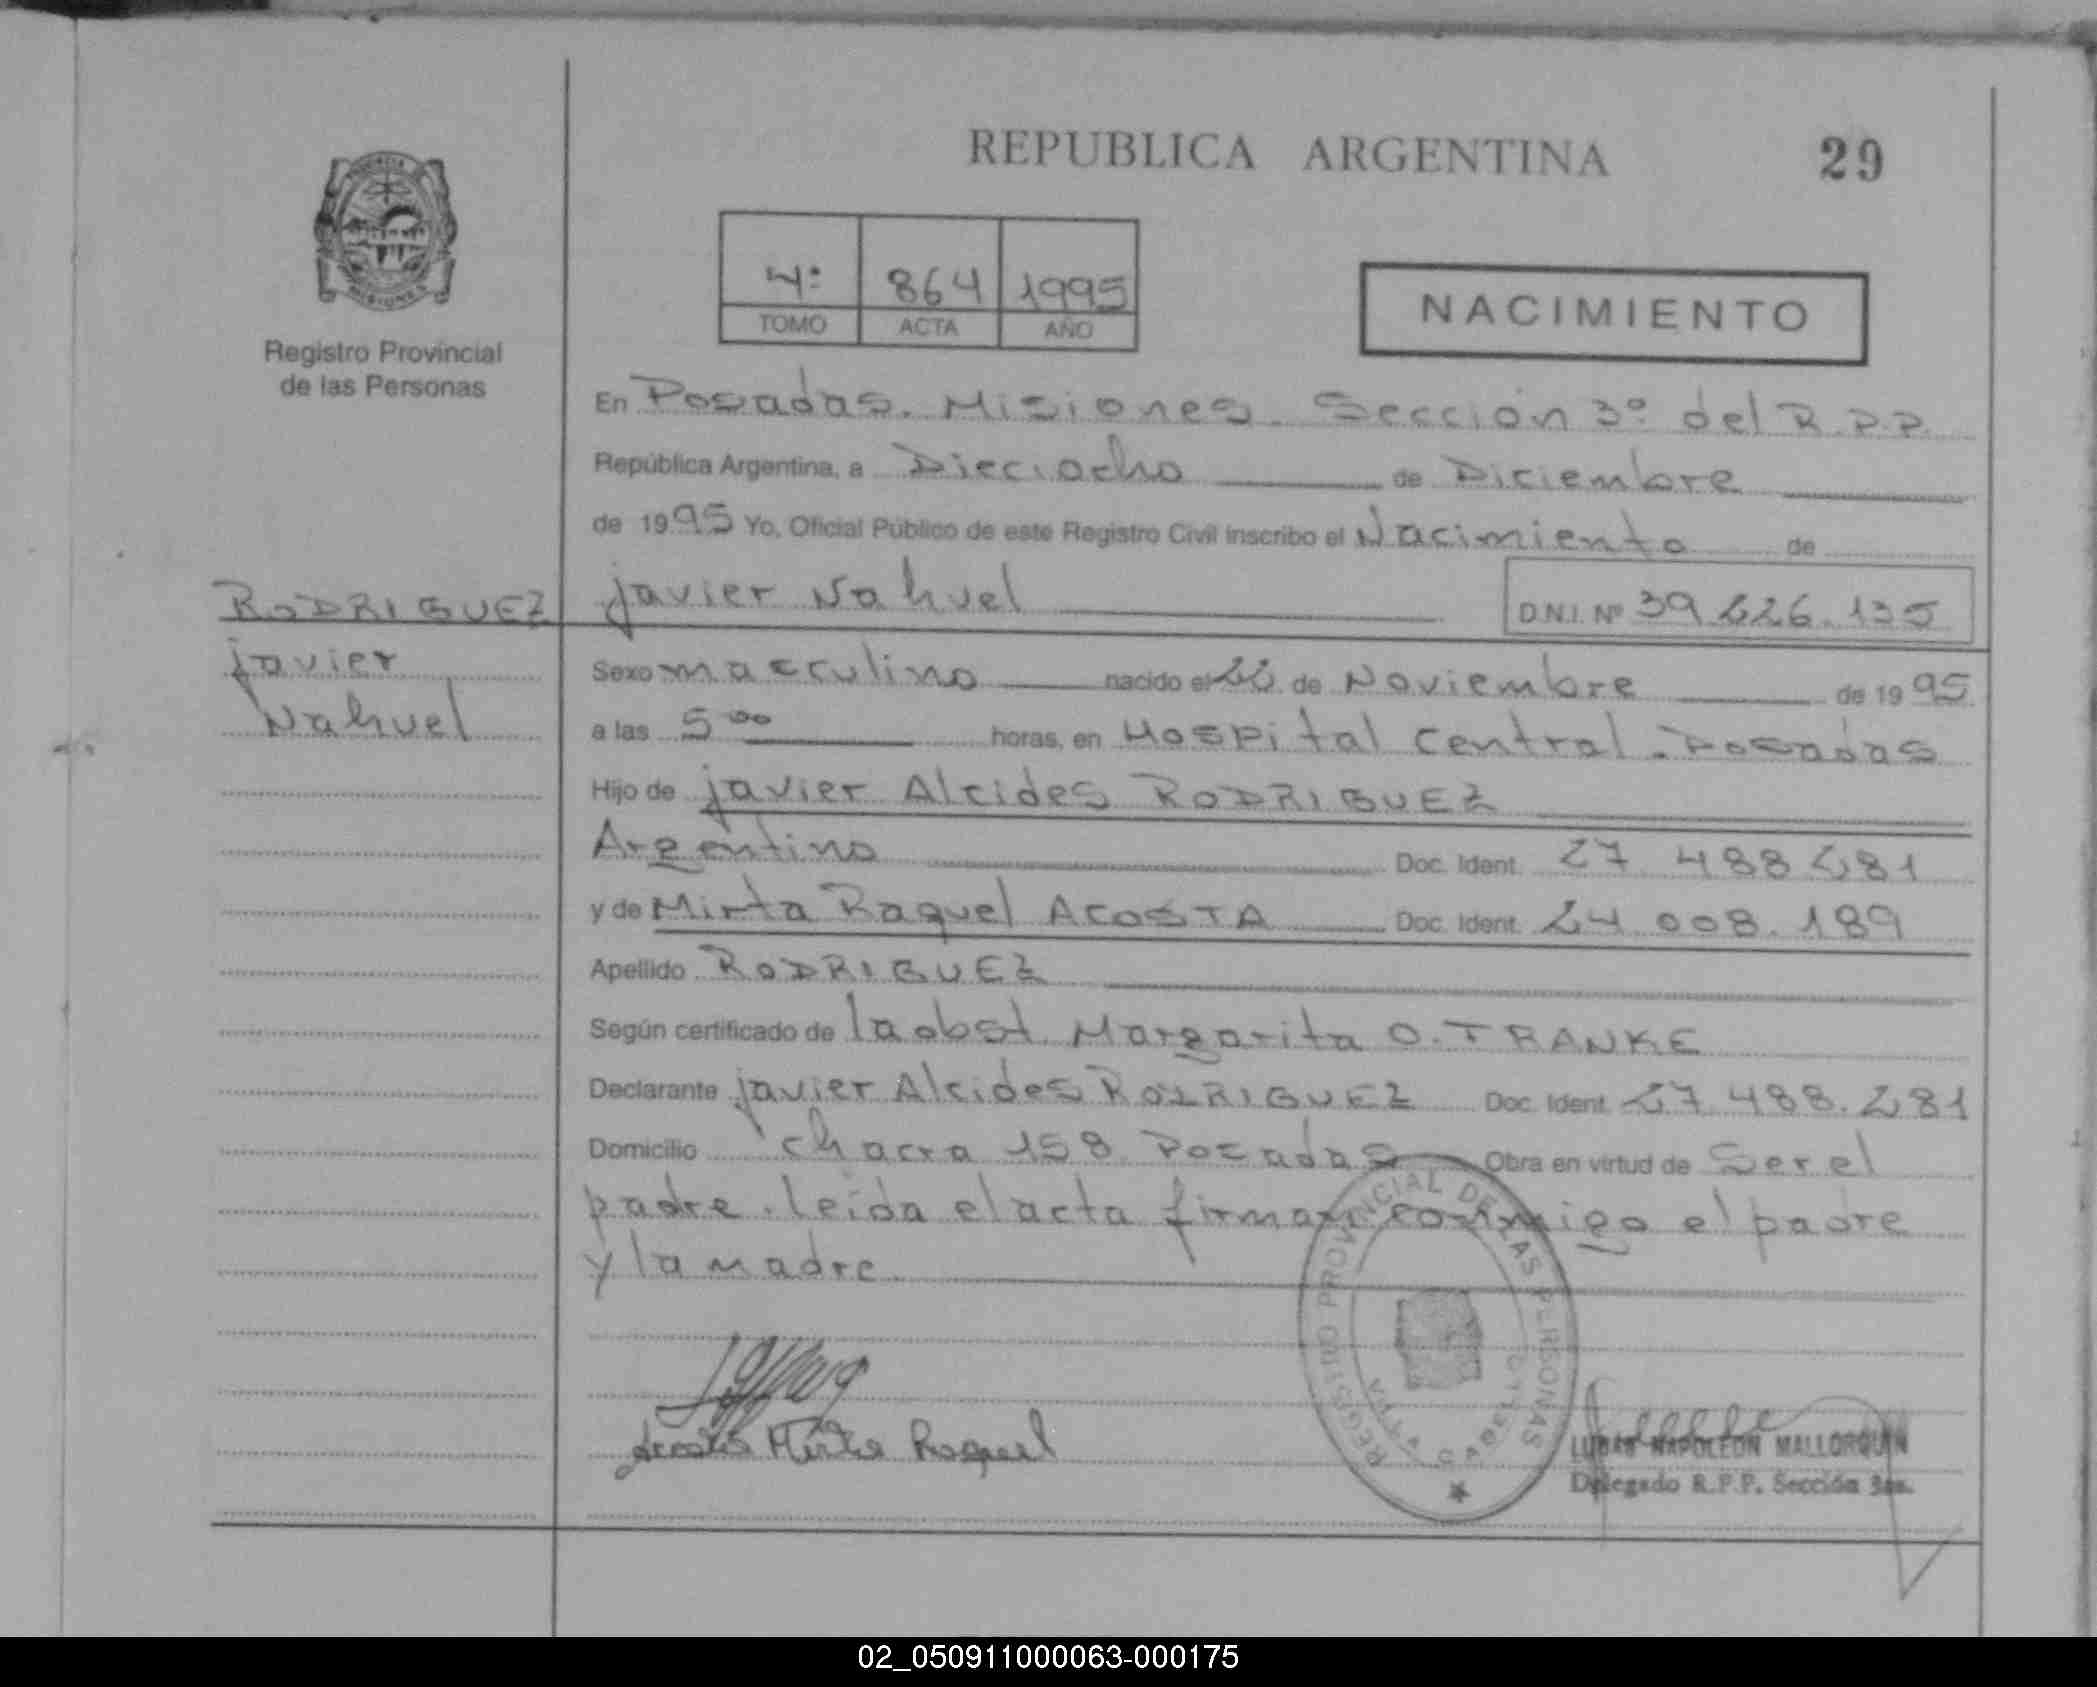 REPUBLICA ARGENTINA
29
PROVINCIA
MISIONES
Registro Provincial
de las Personas
4º 864 1995
TOMO ACTA AÑO
NACIMIENTO
En Posadas. Misiones. Sección 3º del R.P.P.
República Argentina, a Dieciocho de Diciembre
de 1995 Yo, Oficial Público de este Registro Civil inscribo el Nacimiento de
RODRIGUEZ
Javier
Nahuel
Javier Nahuel D.N.I. Nº 39.226.135
Sexo masculino nacido el 22 de Noviembre de 1995
a las 5 00 horas, en Hospital Central - Posadas
Hijo de Javier Alcides RODRIGUEZ
Argentino Doc. Ident. 27 488 281
y de Mirta Raquel ACOSTA Doc. Ident. 24.008.189
Apellido RODRIGUEZ
Según certificado de la obst. Margarita O. TRANKE
Declarante Javier Alcides RODRIGUEZ Doc. Ident. 27.488.281
Domicilio chacra 158 Posadas Obra en virtud de Ser el
padre. leida el acta firman conmigo el padre
y la madre
REGISTRO PROVINCIAL DE LAS PERSONAS
VILLA CABELLO
Acosta Mirta Raquel
LUCAS NAPOLEON MALLORQUIN
Delegado R.P.P. Sección 3ra.
02_050911000063-000175